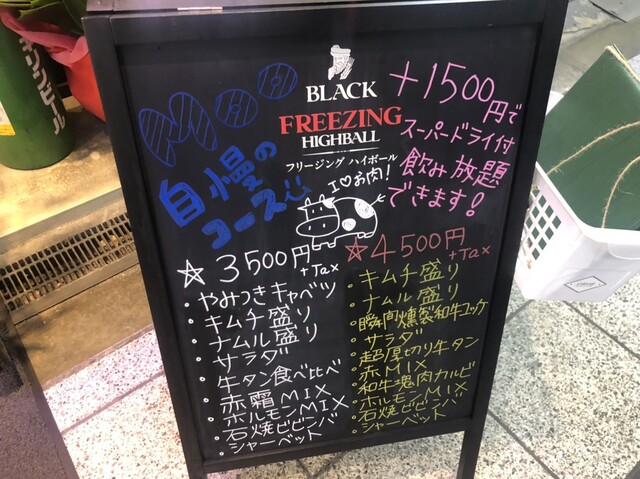 キリンビール
BLACK
FREEZING
HIGHBALL
フリージング ハイボール
Moo
自慢の
コース
+1500
円で
スーパードライ付
飲み放題
できます!
I♡お肉!
☆3500円
+Tax
・やみつきキャベツ
・キムチ盛り
・ナムル盛り
・サラダ
・牛タン食べ比べ
・赤霜MIX
・ホルモンMIX
・石焼ビビンバ
・シャーベット
☆4500円
+Tax
・キムチ盛り
・ナムル盛り
・瞬間燻製和牛ユッケ
・サラダ
・超厚切り牛タン
・赤MIX
・和牛塊肉カルビ
・ホルモンMIX
・石焼ビビンバ
・シャーベット